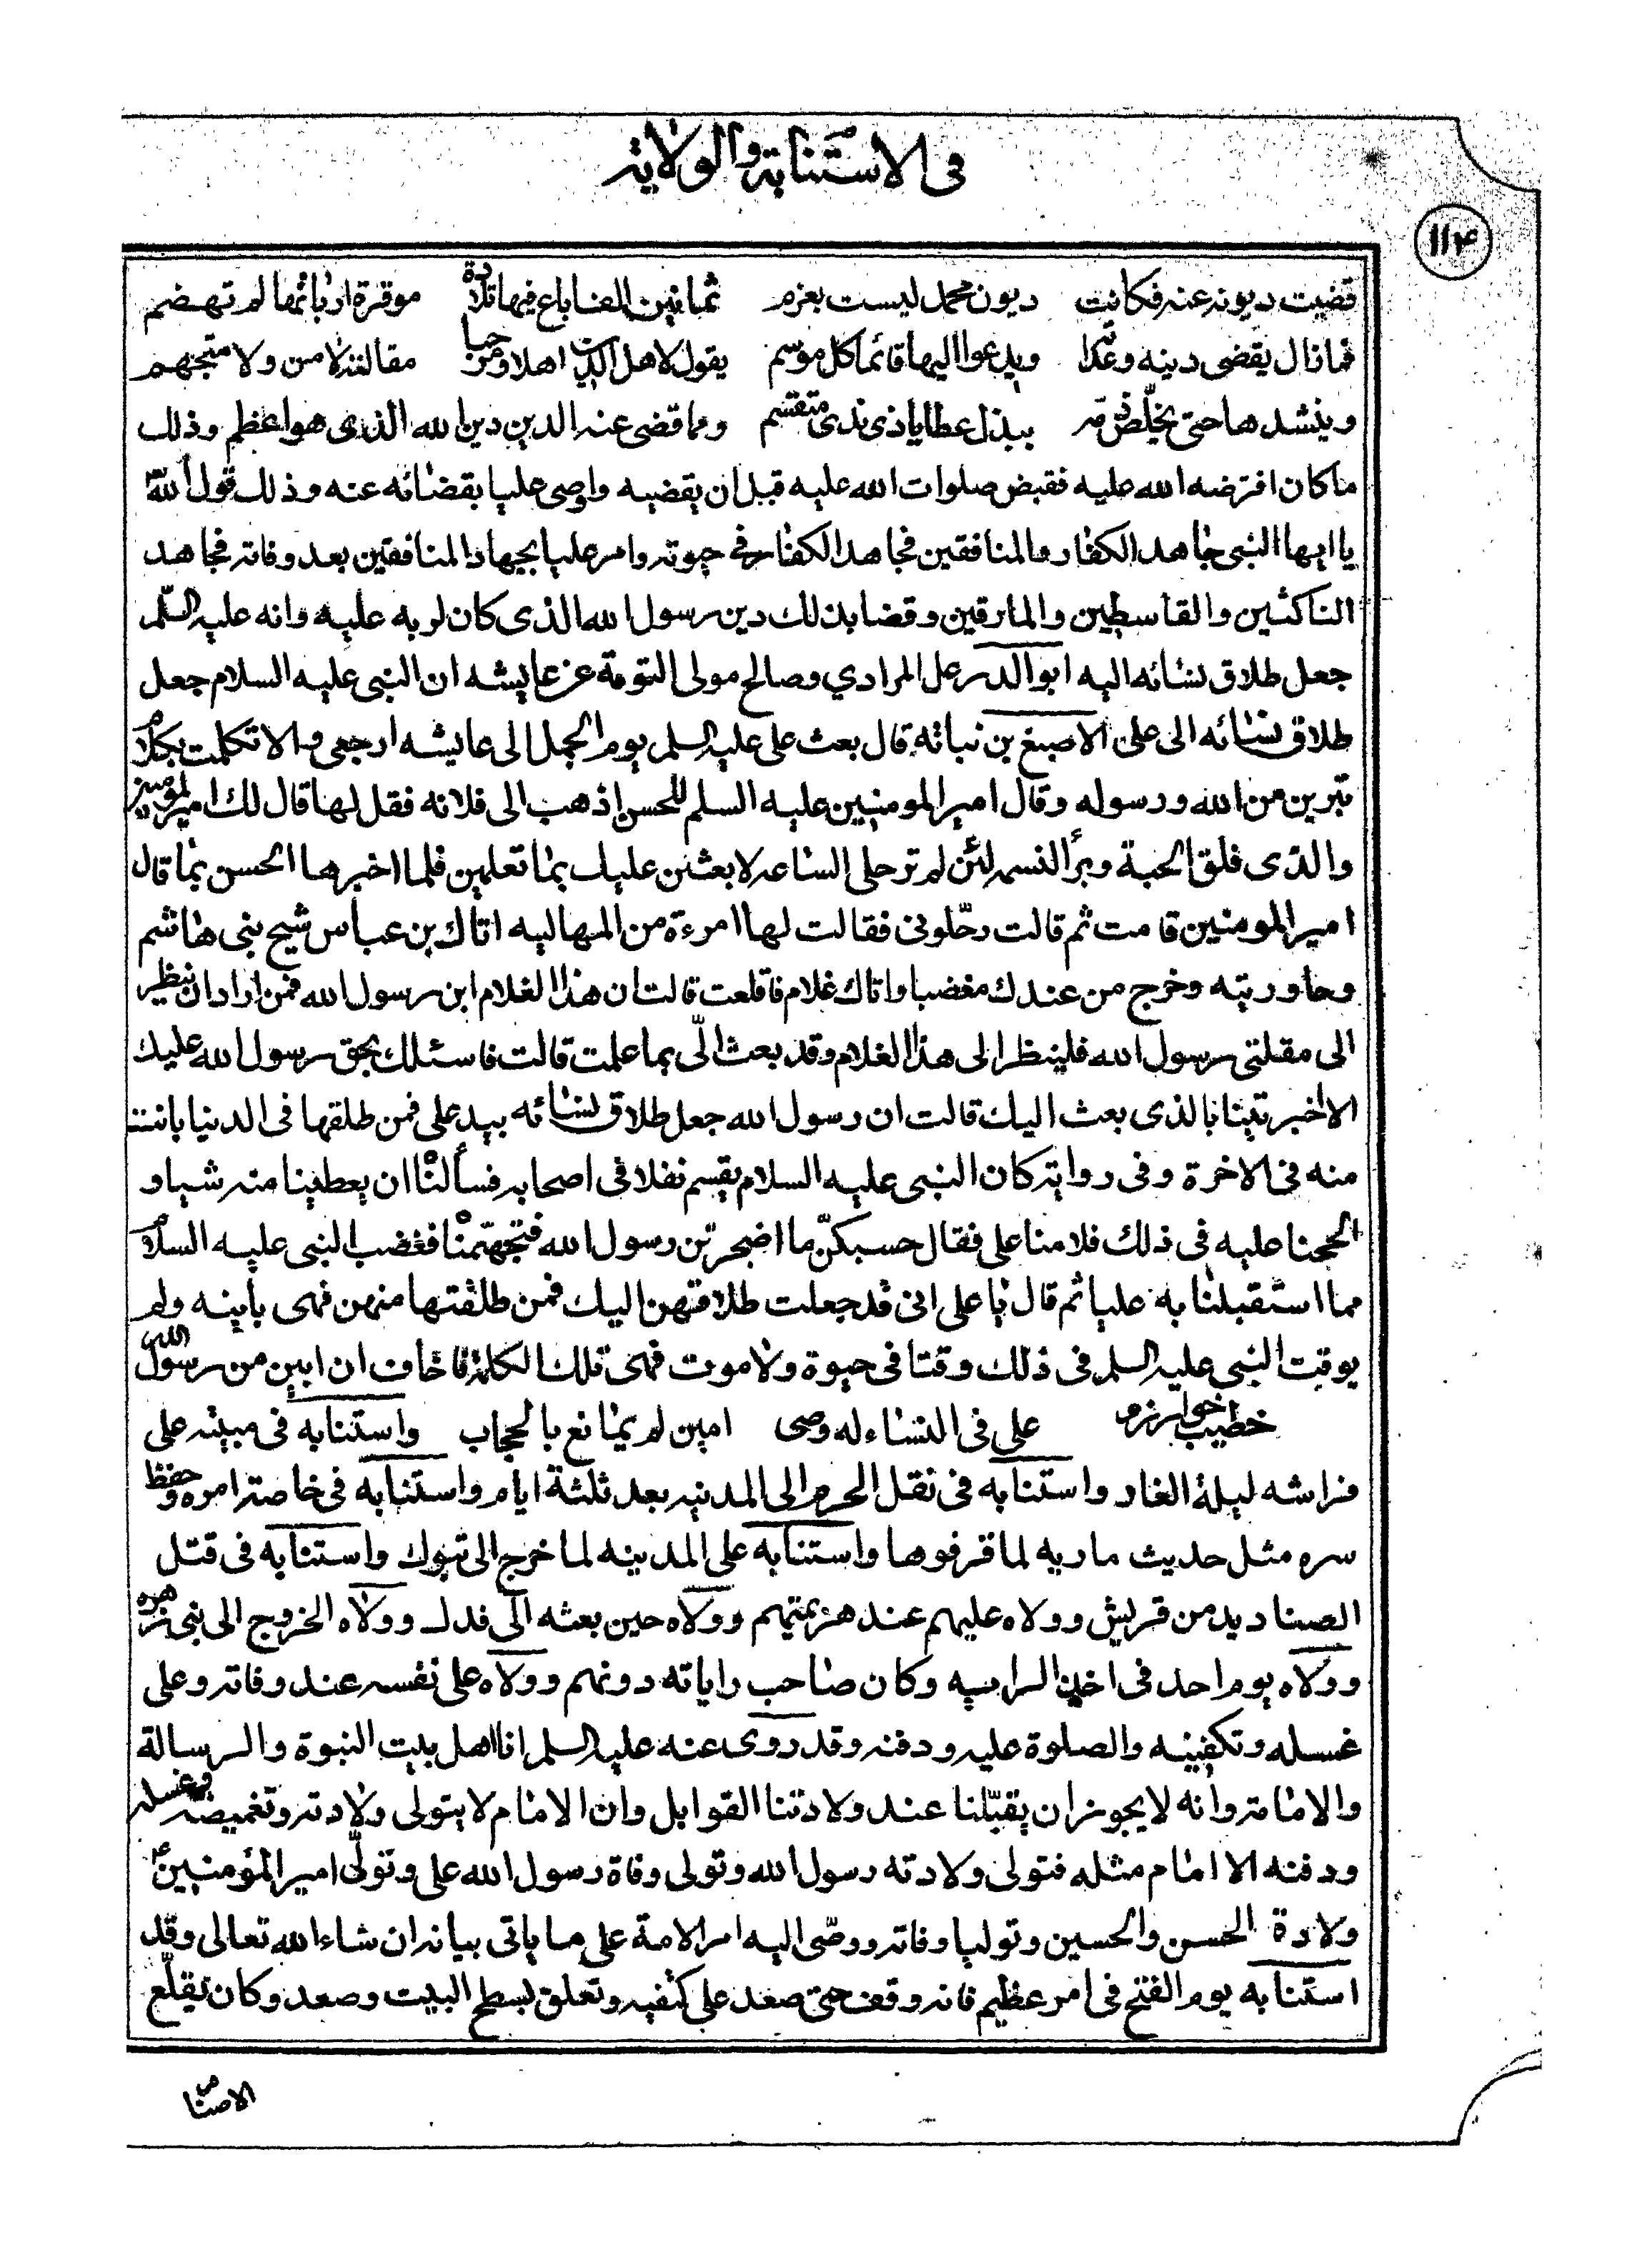 فى الاستنابة والولاية
١١٤
قضيت ديونه عنه فكانت ديون محمد ليست بغرم ثمانين الفا باع فيها تلاده موقرة ارباثها لم تهضم
فما زال يقضى دينه وعداته ويدعوا اليها قائما كل موسم يقول لاهل الدين اهلا ومرحبا مقالة لا من ولا متجهم
وينشدها حتى يخلّص ذمته ببذل عطايا ذى ندى متقسم ومما قضى عنه الدين دين الله الذى هو اعظم وذلك
ما كان افترضه الله عليه فقبض صلوات الله عليه قبل ان يقضيه واوصى عليا بقضائه عنه وذلك قول الله
يا ايها النبى جاهد الكفار والمنافقين فجاهد الكفار فى حيوته وامر عليا بجهاد المنافقين بعد وفاته فجاهد
الناكثين والقاسطين والمارقين وقضا بذلك دين رسول الله الذى كان لربه عليه وانه عليه السلم
جعل طلاق نسائه اليه ابو الدر عل المرادي وصالح مولى التومة عن عايشه ان النبى عليه السلام جعل
طلاق نسائه الى على الاصبغ بن نباتة قال بعث على عليه السلم يوم الجمل الى عايشه ارجعى والا تكلمت بكلام
تبرين من الله ورسوله وقال امير المومنين عليه السلم للحسن اذهب الى فلانه فقل لها قال لك امير المؤمنين
والذى فلق الحبة وبرأ النسمه لئن لم ترحلى الساعه لابعثن عليك بما تعلمين فلما اخبرها الحسن بما قال
امير المومنين قامت ثم قالت رحّلونى فقالت لها امرءة من المهالبه اتاك بن عباس شيخ بنى هاشم
وحاورتيه وخرج من عندك مغضبا واتاك غلام فاقلعت قالت ان هذا الغلام ابن رسول الله فمن اراد ان ينظر
الى مقلتى رسول الله فلينظر الى هذا الغلام وقد بعث الىّ بما علمت قالت فاسئلك بحق رسول الله عليك
الا اخبرتينا بالذى بعث اليك قالت ان رسول الله جعل طلاق نسائه بيد على فمن طلقها فى الدنيا بانت
منه فى الاخرة وفى رواية كان النبى عليه السلام يقسم نفلا فى اصحابه فسألناان يعطينا منه شيا و
الححنا عليه فى ذلك فلامنا على فقال حسبكنّ ما اضجرتن رسول الله فتجهّمنا فغضب النبى عليه السلام
مما استقبلنا به عليا ثم قال يا على انى قد جعلت طلاقهن اليك فمن طلقتها منهن فهى باينه ولم
يوقت النبى عليه السلم فى ذلك وقتا فى حيوة ولا موت فهى تلك الكلمة فاخاف ان ابين من رسول الله
خطيب خوارزم على فى النساء له وصى امين لم يمانع بالحجاب واستنابه فى مبيته على
فراشه ليلة الغار واستنابه فى نقل الحرم الى المدنيه بعد ثلثة ايام واستنابه فى خاصة امره وحفظ
سره مثل حديث ماريه لما قرفوها واستنابه على المدينه لما خرج الى تبوك واستنابه فى قتل
الصناديد من قريش وولاه عليهم عند هزيمتهم وولاه حين بعثه الى فدك وولاه الخروج الى بنى زهره
وولاه يوم احد فى اخذ الرايه وكان صاحب راياته دونهم وولاه على نفسه عند وفاته وعلى
غسله وتكفينه والصلوة عليه ودفنه وقد روى عنه عليه السلم انا اهل بيت النبوة والرسالة
والامامة وانه لا يجوز ان يقبّلنا عند ولادتنا القوابل وان الامام لا يتولى ولادته وتغميضه وغسله
ودفنه الا امام مثله فتولى ولادته رسول الله وتولى وفاة رسول الله على وتولّى امير المؤمنين
ولادة الحسن والحسين وتوليا وفاته ووصّى اليه امر الامة على ما ياتى بيانه ان شاء الله تعالى وقد
استنابه يوم الفتح فى امر عظيم فانه وقف حتى صعد على كتفيه وتعلق بسطح البيت وصعد وكان يقلّع
الاصنام